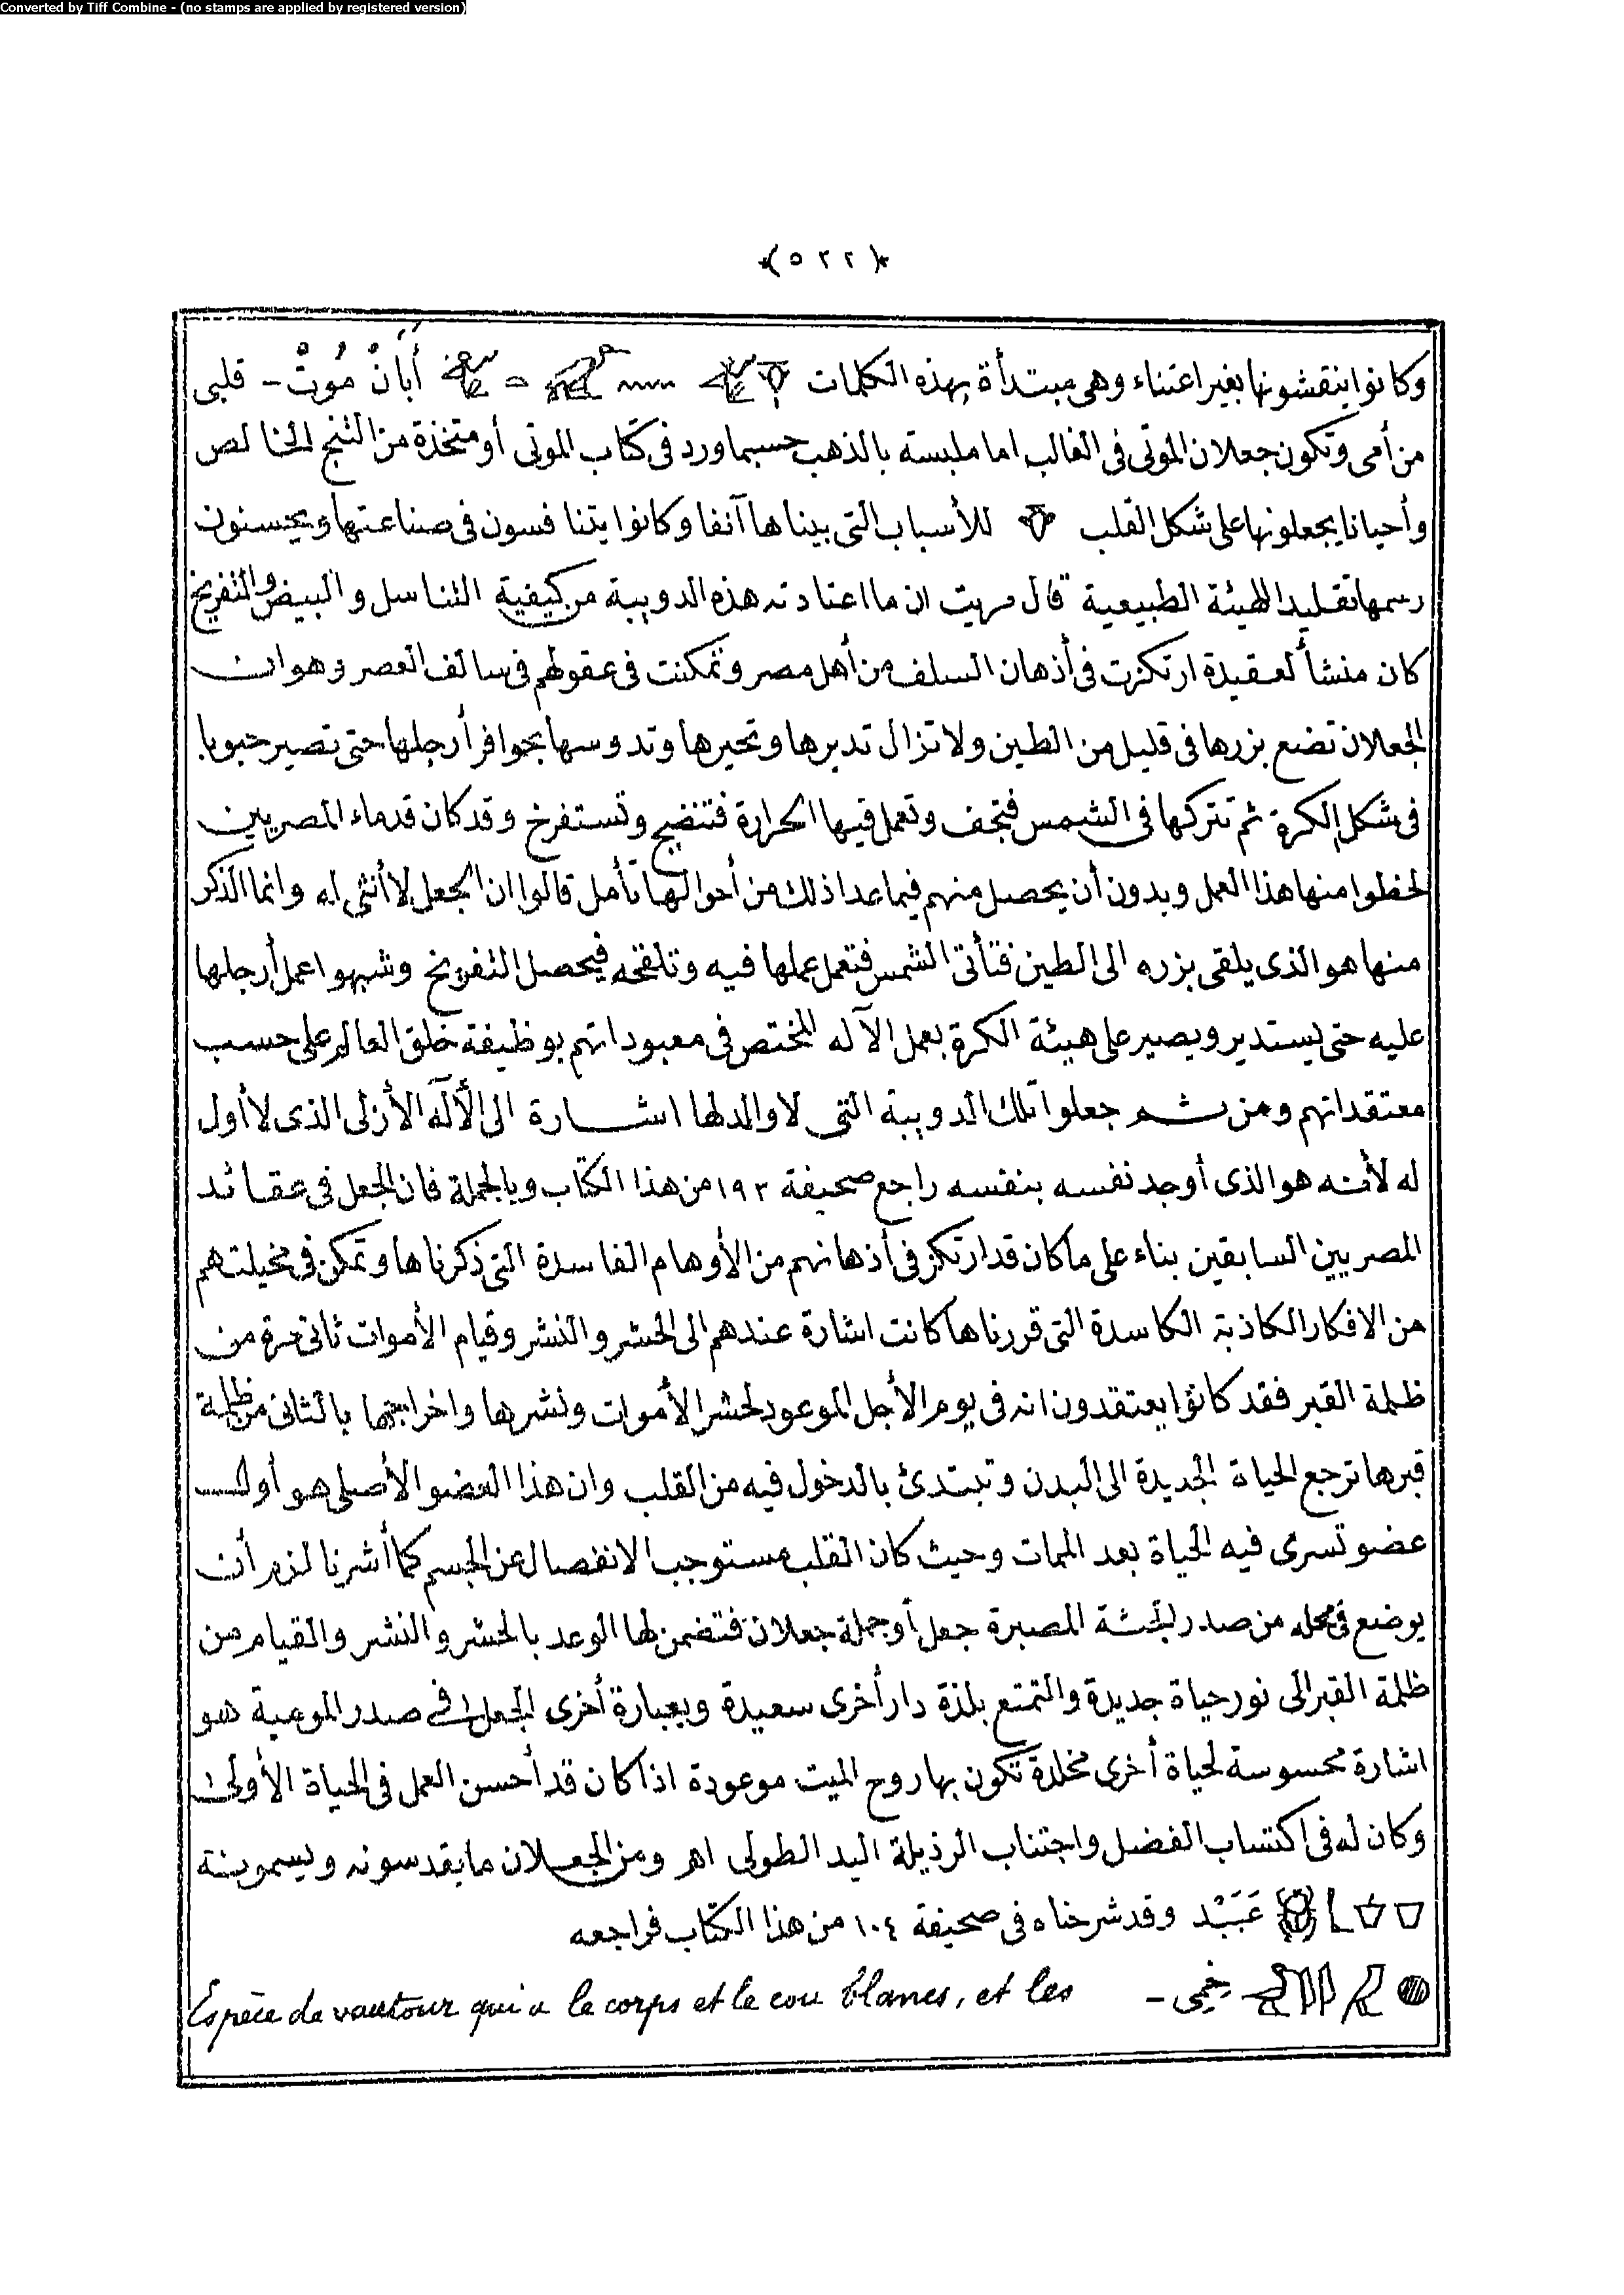 Converted by Tiff Combine - (no stamps are applied by registered version)
﴿٥٢٢﴾
وكانوا ينقشونها بغير اعتناء وهى مبتدأة بهذه الكلمات أَبَانْ مُوتْ - قلبى
من أمى وتكون جعلان الموتى فى الغالب اما ملبسة بالذهب حسبما ورد فى كتاب الموتى أو متخذة من الثنج الخالص
وأحيانا يجعلونها على شكل القلب للأسباب التى بيناها آنفا وكانوا يتنافسون فى صناعتها ويحسنون
رسمها تقليد الهيئة الطبيعية قال مريت ان ما اعتادته هذه الدويبة من كيفية التناسل والبيض والتفريخ
كان منشأ لعقيدة ارتكزت فى أذهان السلف من أهل مصر وتمكنت فى عقولهم فى سالف العصر وهو ان
الجعلان تضع بزرها فى قليل من الطين ولا تزال تديرها وتحيرها وتدوسها بحوافر أرجلها حتى تصير حبوبا
فى شكل الكرة ثم تتركها فى الشمس فتجف وتعمل فيها الحرارة فتنضج وتستفرخ وقد كان قدماء المصريين
لحظوا منها هذا العمل وبدون أن يحصل منهم فيما عدا ذلك من أحوالها تأمل قالوا ان الجعل لا أنثى له وانما الذكر
منها هو الذى يلقى بزره الى الطين فتأتى الشمس فتعمل عملها فيه وتلقحه فيحصل التفريخ وشبهوا عمل أرجلها
عليه حتى يستدير ويصير على هيئة الكرة بعمل الآله المختص فى معبوداتهم بوظيفة خلق العالم على حسب
معتقداتهم ومن ثم جعلوا تلك الدويبة التى لا والد لها اشارة الى الأله الأزلى الذى لا أول
له لأنه هو الذى أوجد نفسه بنفسه راجع صحيفة ١٩٣ من هذا الكتاب وبالجملة فان الجعل فى عقائد
المصريين السابقين بناء على ما كان قد ارتكز فى أذهانهم من الأوهام الفاسدة التى ذكرناها وتمكن فى مخيلتهم
من الافكار الكاذبة الكاسدة التى قررناها كانت اشارة عندهم الى الحشر والنشر وقيام الأموات ثانى مرة من
ظلمة القبر فقد كانوا يعتقدون انه فى يوم الأجل الموعود لحشر الأموات ونشرها واخراجها بالثانى من ظلمة
قبرها ترجع الحياة الجديدة الى البدن وتبتدئ بالدخول فيه من القلب وان هذا العضو الأصلى هو أول
عضو تسرى فيه الحياة بعد الممات وحيث كان القلب مستوجب الانفصال عن الجسم كما أشرنا لزم أن
يوضع فى محله من صدر الجثة المصبرة جعل أو جملة جعلان فتضمن لها الوعد بالحشر والنشر والقيام من
ظلمة القبر الى نور حياة جديدة والتمتع بلذة دار أخرى سعيدة وبعبارة أخرى الجعل فى صدر المومية هو
اشارة محسوسة لحياة أخرى مخلدة تكون بها روح الميت موعودة اذا كان قد أحسن العمل فى الحياة الأولى
وكان له فى اكتساب الفضل واجتناب الرذيلة اليد الطولى اهـ ومن الجعلان ما يقدسونه ويسمونه
عَبَيْد وقد شرحناه فى صحيفة ١٠٤ من هذا الكتاب فراجعه
خيمى - Espèce de vautour qui a le corps et le cou blancs, et les